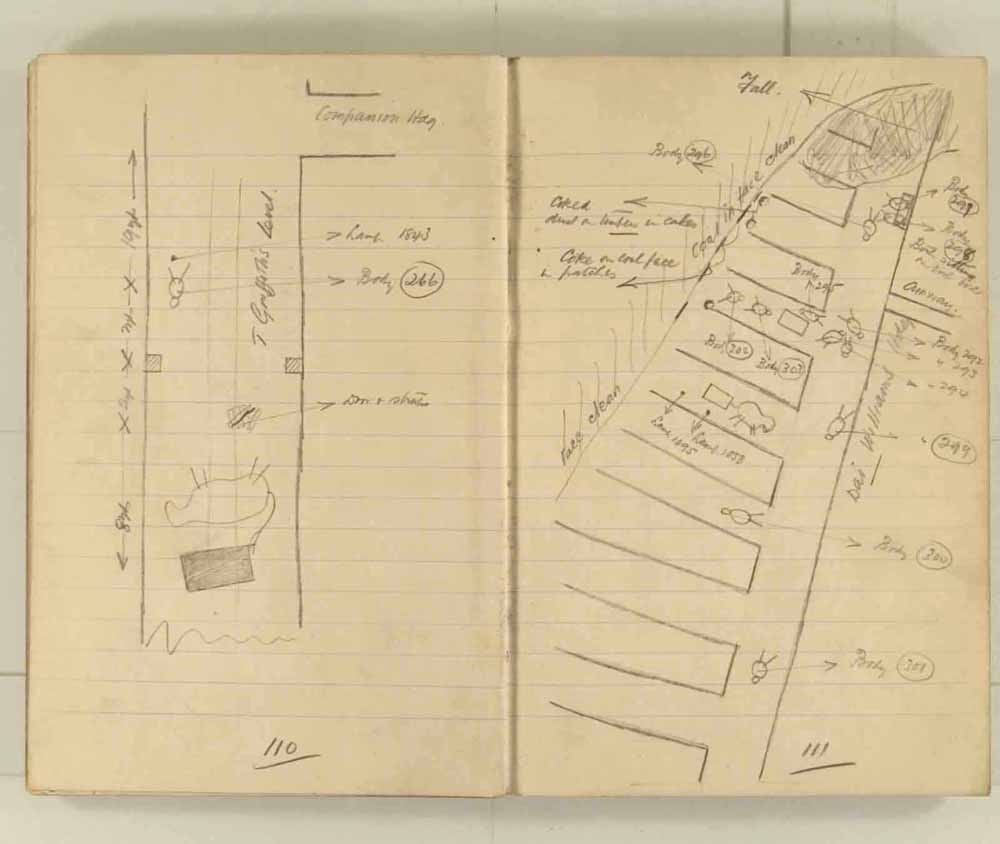 Companion Hdg.
19 yds
X
2 yds
X
2 yds
X
8 yds
T Griffiths level.
Lamp 1843
Body 266
Door &
110
Fall.
Body 296
Coal in face clean
Coked
dust on timbers in cakes
Coke on coal face
in patches
Body
298
on tool box
Body
295
Body 302
Body 303
Body 292
" 293
" 294
face clean
Lamp 1095
Lamp 1058
Dai Williams Hdg
" 299
Body 300
Body 301
111